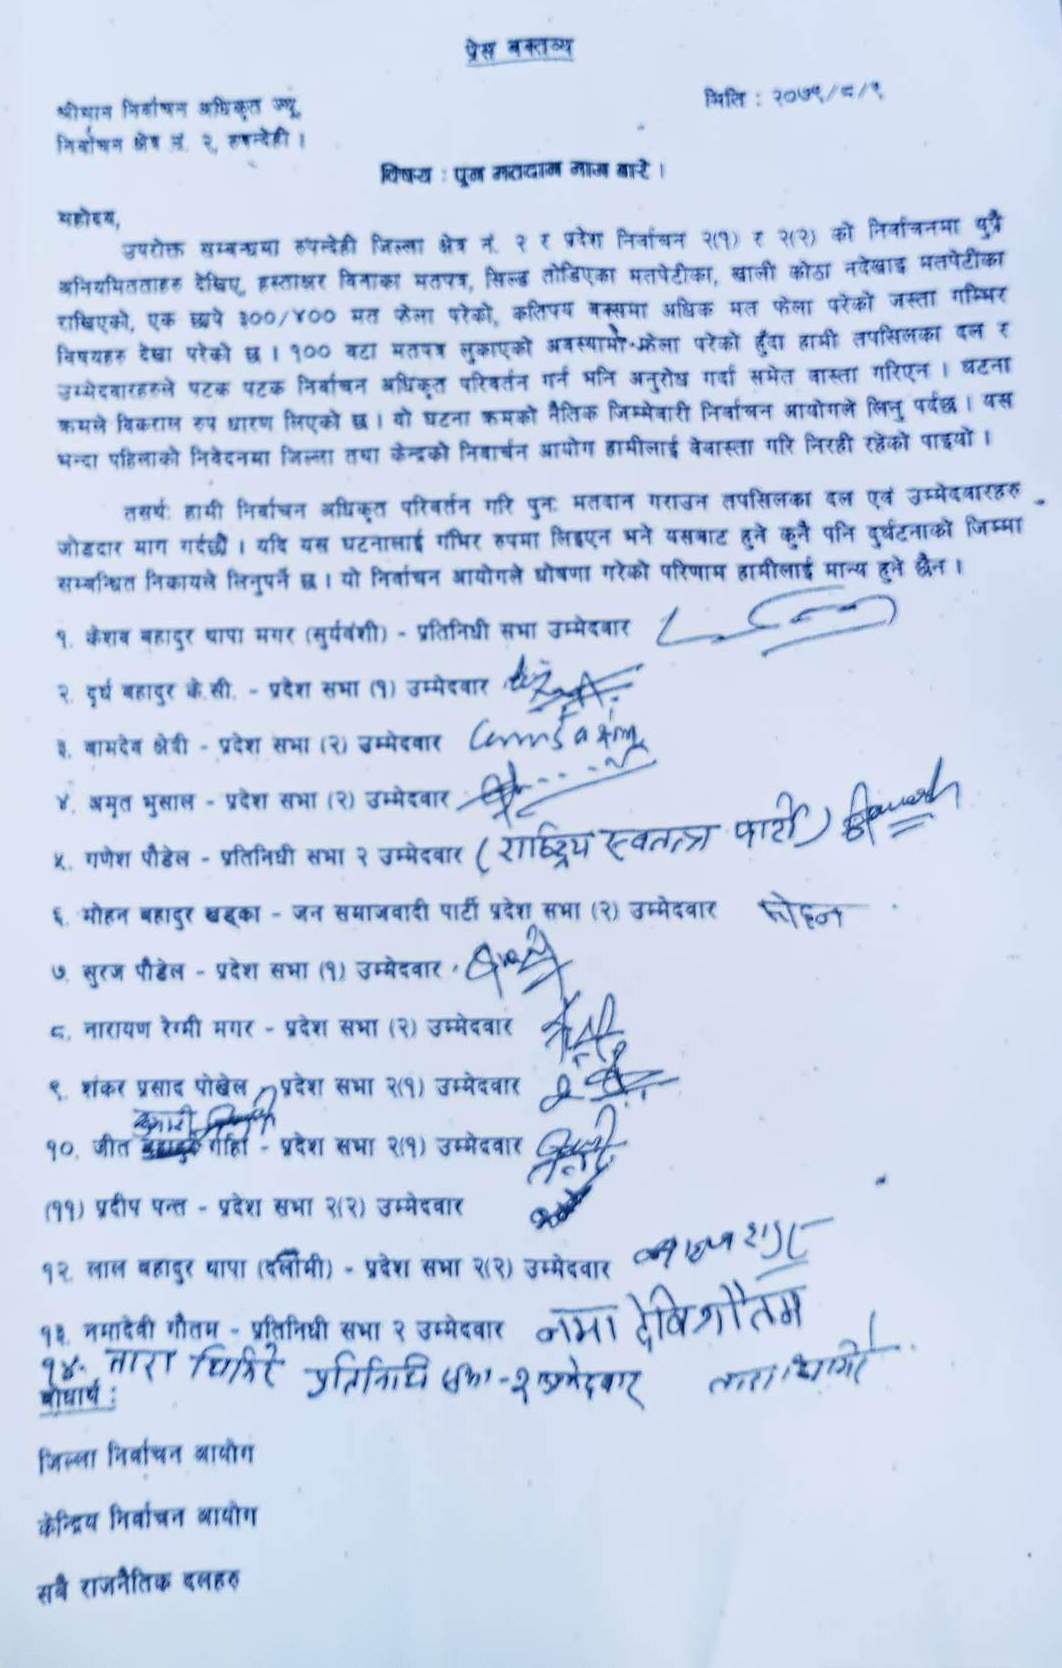 प्रेस वक्तव्य
मिति : २०७९/८/९
श्रीमान निर्वाचन अधिकृत ज्यू,
निर्वाचन क्षेत्र नं. २, रुपन्देही ।
विषय : पून मतदान माग बारे ।
महोदय,
उपरोक्त सम्बन्धमा रुपन्देही जिल्ला क्षेत्र नं. २ र प्रदेश निर्वाचन २(१) र २(२) को निर्वाचनमा थुप्रै
अनियमितताहरु देखिए, हस्ताक्षर विनाका मतपत्र, सिल्ड तोडिएका मतपेटीका, खाली कोठा नदेखाइ मतपेटीका
राखिएको, एक छापे ३००/४०० मत फेला परेको, कतिपय बक्समा अधिक मत फेला परेको जस्ता गम्भिर
विषयहरु देखा परेको छ । १०० वटा मतपत्र लुकाएको अवस्थामा फेला परेको हुँदा हामी तपसिलका दल र
उम्मेदवारहरुले पटक पटक निर्वाचन अधिकृत परिवर्तन गर्न भनि अनुरोध गर्दा समेत वास्ता गरिएन । घटना
क्रमले विकराल रुप धारण लिएको छ । यो घटना क्रमको नैतिक जिम्मेवारी निर्वाचन आयोगले लिनु पर्दछ । यस
भन्दा पहिलाको निवेदनमा जिल्ला तथा केन्द्रको निवार्चन आयोग हामीलाई वेवास्ता गरि निरही रहेको पाइयो ।
तसर्थः हामी निर्वाचन अधिकृत परिवर्तन गरि पुनः मतदान गराउन तपसिलका दल एवं उम्मेदवारहरु
जोडदार माग गर्दछौं । यदि यस घटनालाई गंभिर रुपमा लिइएन भने यसबाट हुने कुनै पनि दुर्घटनाको जिम्मा
सम्बन्धित निकायले लिनुपर्ने छ । यो निर्वाचन आयोगले घोषणा गरेको परिणाम हामीलाई मान्य हुने छैन ।
१. केशव बहादुर थापा मगर (सुर्यवंशी) - प्रतिनिधी सभा उम्मेदवार
२. दुर्घ बहादुर के.सी. - प्रदेश सभा (१) उम्मेदवार
३. बामदेव क्षेत्री - प्रदेश सभा (२) उम्मेदवार
४. अमृत भुसाल - प्रदेश सभा (२) उम्मेदवार
५. गणेश पौडेल - प्रतिनिधी सभा २ उम्मेदवार (राष्ट्रिय स्वतन्त्र पार्टी)
६. मोहन बहादुर खड्का - जन समाजवादी पार्टी प्रदेश सभा (२) उम्मेदवार मोहन
७. सुरज पौडेल - प्रदेश सभा (१) उम्मेदवार
८. नारायण रेग्मी मगर - प्रदेश सभा (२) उम्मेदवार
९. शंकर प्रसाद पोखेल - प्रदेश सभा २(१) उम्मेदवार
१०. जीत गाहा - प्रदेश सभा २(१) उम्मेदवार
(११) प्रदीप पन्त - प्रदेश सभा २(२) उम्मेदवार
१२. लाल बहादुर थापा (दर्लामी) - प्रदेश सभा २(२) उम्मेदवार
१३. नमादेवी गौतम - प्रतिनिधी सभा २ उम्मेदवार नमा देवि गौतम
१४. तारा घिमिरे प्रतिनिधि सभा - २ उम्मेदवार तारा घिमिरे
बोधार्थ :
जिल्ला निर्वाचन आयोग
केन्द्रिय निर्वाचन आयोग
सबै राजनैतिक दलहरु